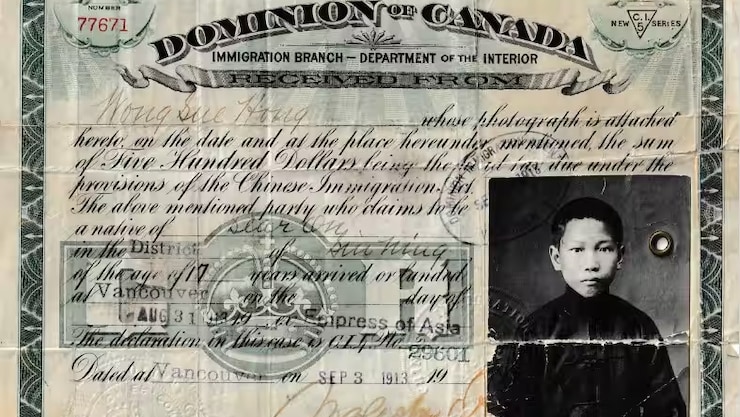 NUMBER
77671
DOMINION OF CANADA
NEW C.I. 5 SERIES
IMMIGRATION BRANCH — DEPARTMENT OF THE INTERIOR
RECEIVED FROM
Wong Sue Hong whose photograph is attached
hereto, on the date and at the place hereunder mentioned, the sum
of Five Hundred Dollars being the head tax due under the
provisions of the Chinese Immigration Act.
The above mentioned party who claims to be
a native of
in the District of Sin Ning
of the age of 17 years arrived or landed
at Vancouver on the day of
AUG 31 Empress of Asia
The declaration in this case is C.I.4. No. 29601
Dated at Vancouver on SEP 3 1913 19